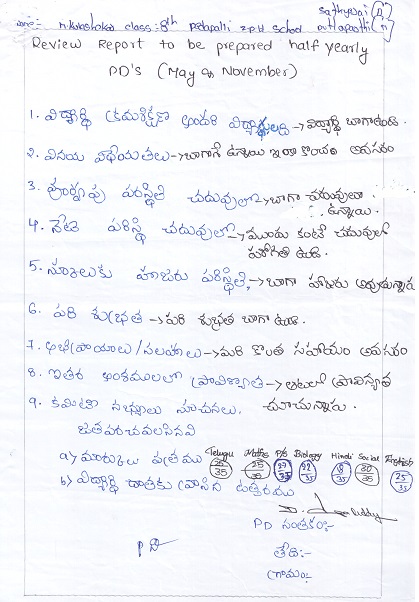 name:- M. Ashoka class:- 8th Pedapalli Z.P.H School
Review Report to be prepared half yearly
PD's (May & November)
1. విద్యార్థి క్రమశిక్షణ → విద్యార్థి బాగా ఉంది.
2. వినయ విధేయతలు → బాగానే ఉన్నాయి ఇంకా కొంచెం అవసరం
3. పూర్వపు పరిస్థితి చదువులో → బాగా చదువుతూ ఉన్నాయి.
4. నేటి పరిస్థితి చదువులో → ముందు కంటే చదువులో పురోగతి ఉంది.
5. స్కూలుకు హాజరు పరిస్థితి, → బాగా హాజరు అవుతున్నారు
6. పరిశుభ్రత → పరిశుభ్రత బాగా ఉంది.
7. అభిప్రాయాలు/సలహాలు → మరి కొంత సహాయం అవసరం
8. ఇతర అంశములలో ప్రావీణ్యత → ఆటలలో ప్రావీణ్యత
9. కమిటీ సభ్యులు సూచనలు. చూచున్నారు.
జతపరచవలసినవి
a) మార్కులు పత్రము Telugu 25/35 Maths 25/35 P/S Biology Hindi 18/35 Social 30/35 English 25/35
b) విద్యార్థి దాతకు వ్రాసిన ఉత్తరము
PD సంతకం:-
తేది:-
గ్రామం:-